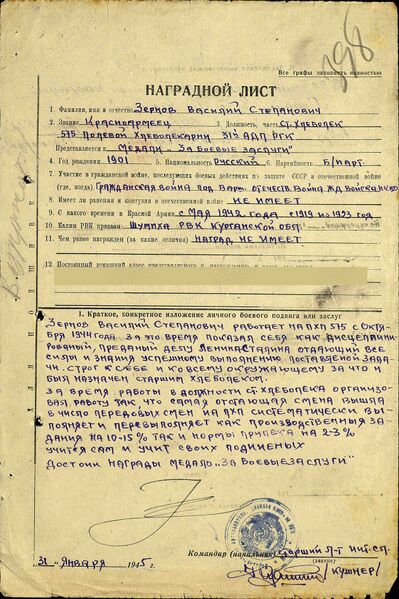 398
Все графы заполнять полностью
НАГРАДНОЙ ЛИСТ
1. Фамилия, имя и отчество Зернов Василий Степанович
2. Звание Красноармеец 3. Должность, часть Ст. Хлебопек
575 Полевой Хлебопекарни 31й АДП РГК
Представляется к Медали „За Боевые заслуги"
4. Год рождения 1901 5. Национальность Русский 6. Партийность Б/парт.
7. Участие в гражданской войне, последующих боевых действиях по защите СССР и отечественной войне
(где, когда) Гражданская война под Отечеств. Война
8. Имеет ли ранения и контузии в отечественной войне Не имеет
9. С какого времени в Красной Армии с Мая 1942 года с 1919 по 1923 год
10. Каким РВК призван Шумиха РВК Курганской обл.
11. Чем ранее награжден (за какие отличия) Наград не имеет
12. Постоянный домашний адрес представляемого к награждению и адрес его семьи
1. Краткое, конкретное изложение личного боевого подвига или заслуг
Зернов Василий Степанович работает на ПХП 575 с Октя
бря 1944 года за это время показал себя как дисциплини
рованный, преданый делу Ленина Сталина отдающий все
силы и знания успешному выполнению поставленой зада
чи. Строг к себе и ко всему окружающему за что и
был назначен старшим хлебопеком.
За время работы в должности ст. хлебопека организо
вал работу так что самая отстающая смена вышла
в число передовых смен на ПХП систематически вы-
полняет и перевыполняет как производственныя за
дания на 10-15% так и нормы припека на 2-3%
учится сам и учит своих подчиненых
Достоин награды медаль „За Боевые заслуги"
Командир (начальник) Старший Л-т Инт. сл.
(звание)
31 „ Января 1945 г.
/Кушнер/